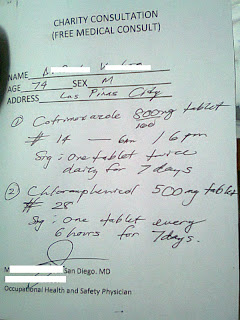 CHARITY CONSULTATION
(FREE MEDICAL CONSULT)
NAME A.
AGE 74 SEX M
ADDRESS Las Piñas City
① Cotrimoxazole 800mg tablet
160
# 14 — 6am / 6pm
Sig: One tablet twice
daily for 7 days
② Chloramphenicol 500mg tablet
# 28
Sig: One tablet every
6 hours for 7 days.
M San Diego. MD
Occupational Health and Safety Physician